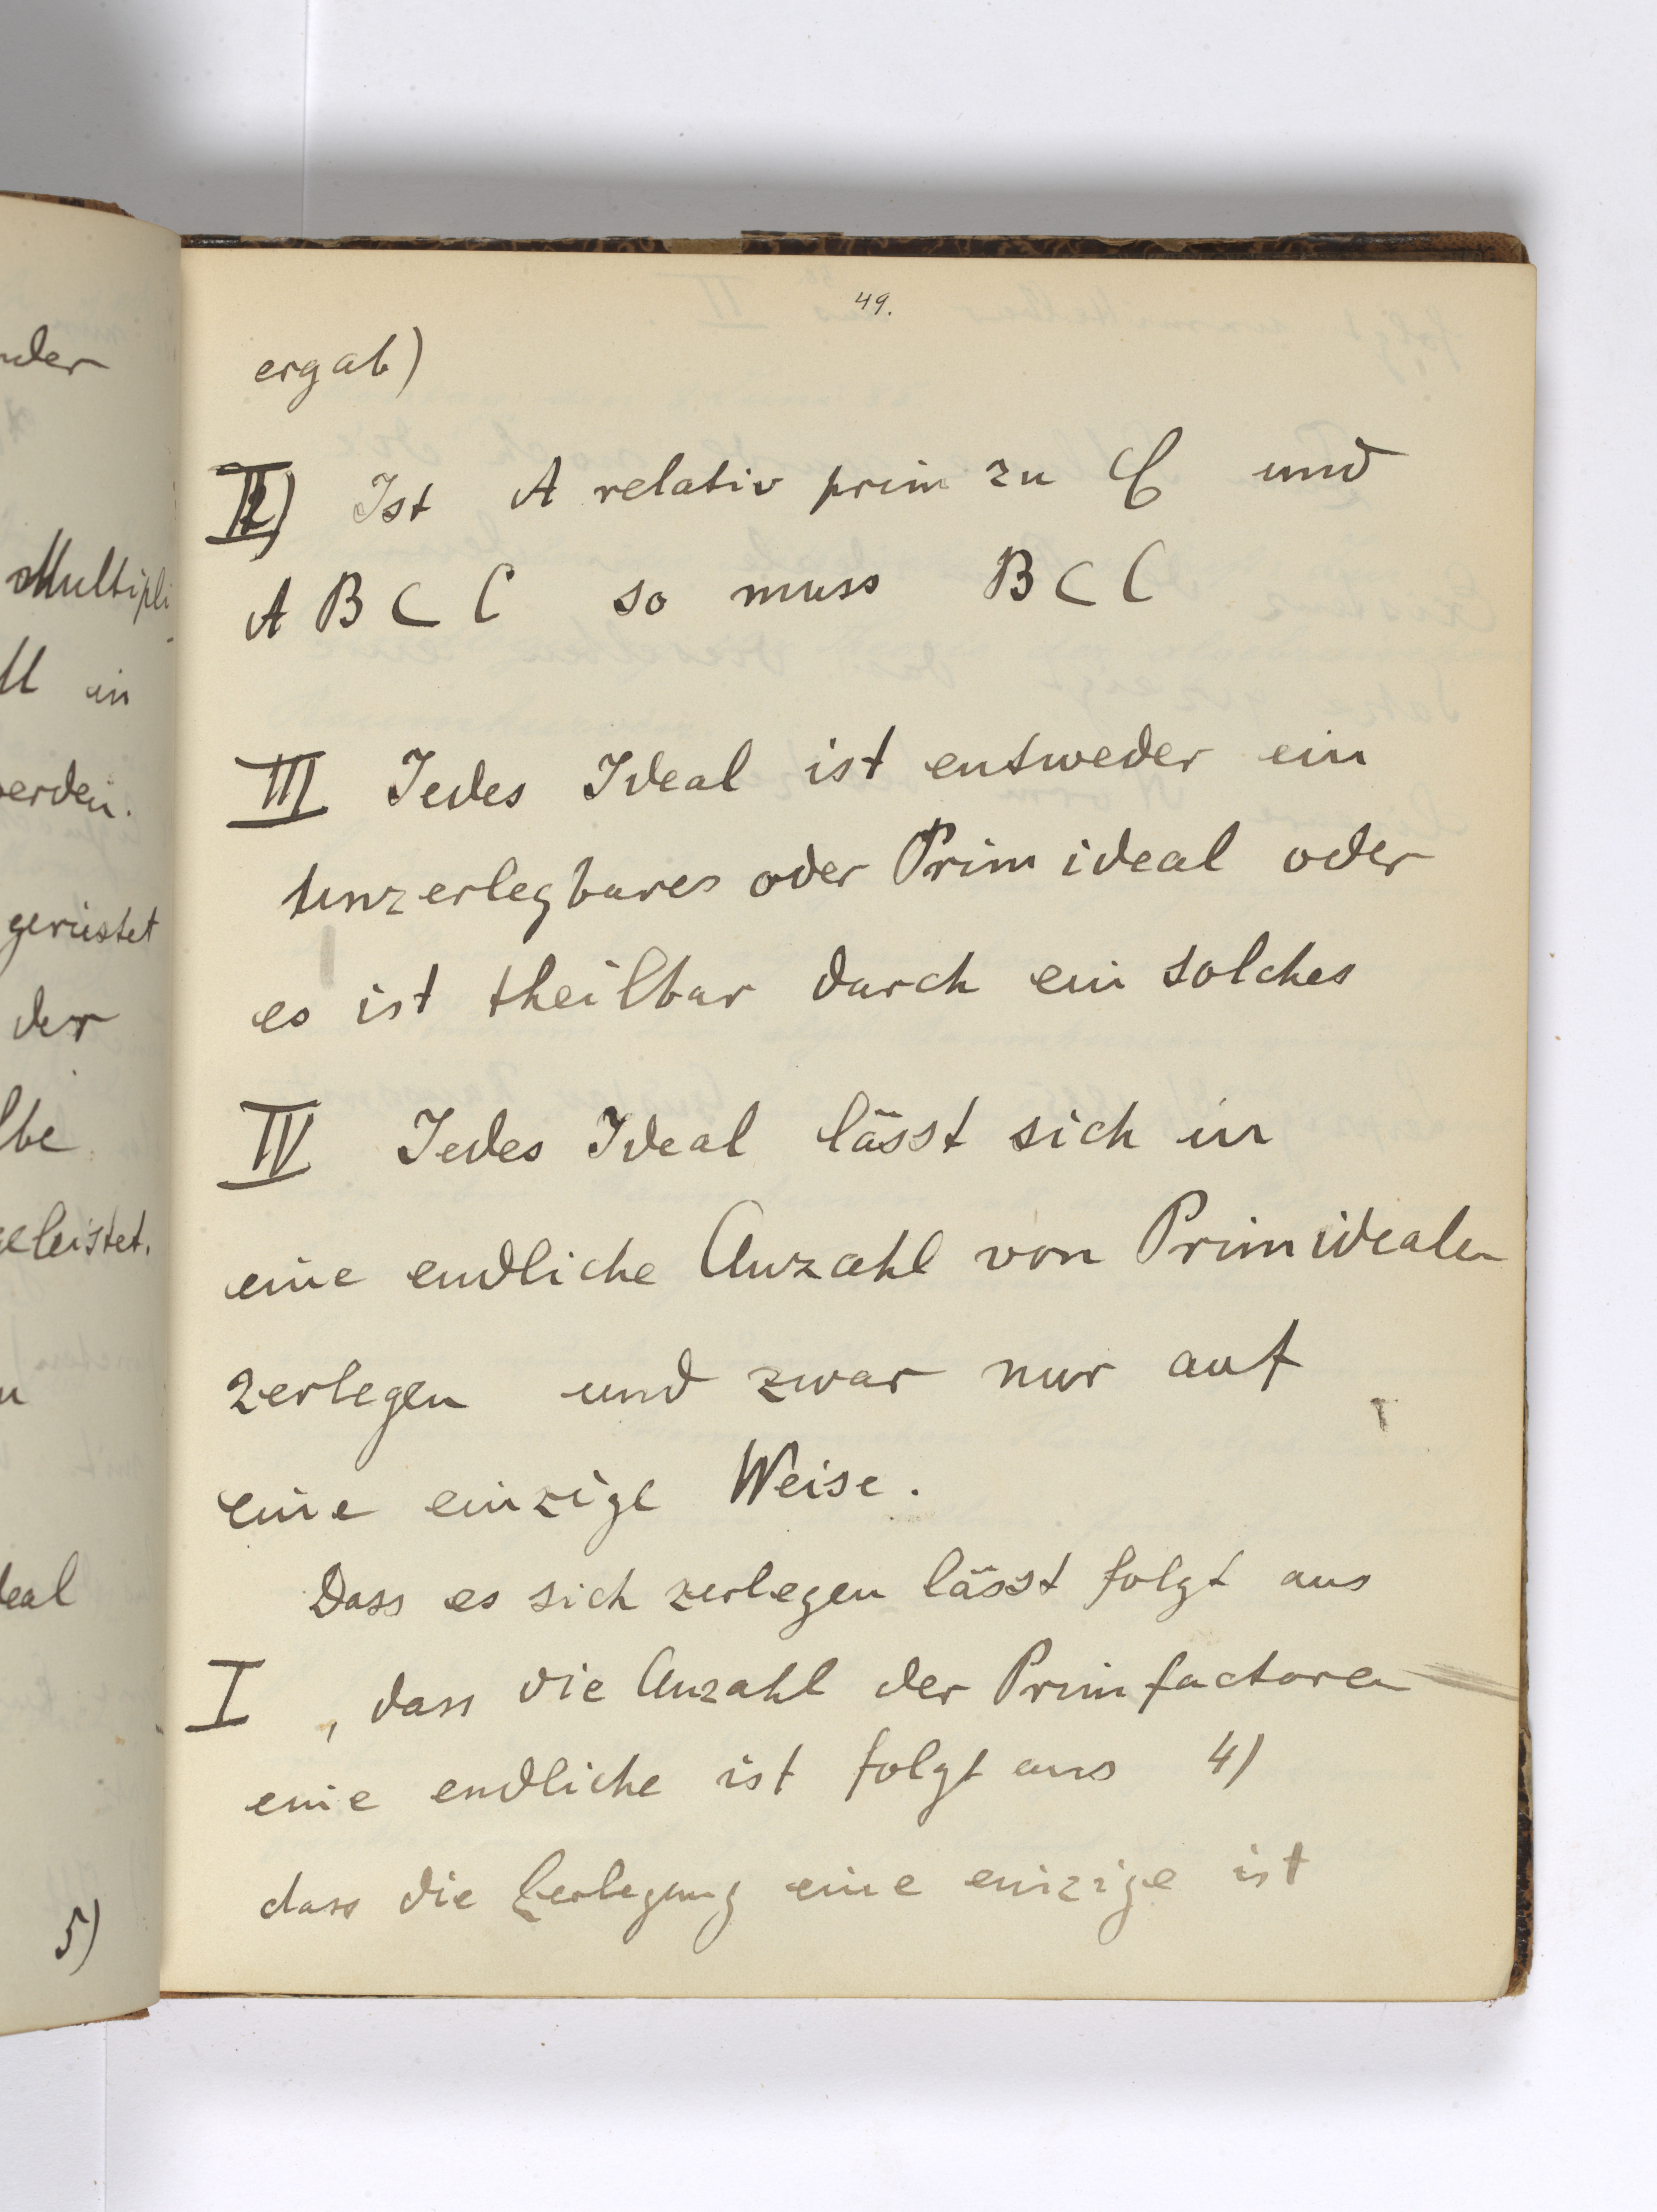 nder
Multipli
ll in
werden.
gerüstet
der
lbe
geleistet.
deal
5)
49.
ergab)
II) Ist A relativ prim zu C und
A B ⊂ C so muss B ⊂ C
III Jedes Ideal ist entweder ein
unzerlegbares oder Primideal oder
es ist theilbar durch ein solches
IV Jedes Ideal lässt sich in
eine endliche Anzahl von Primidealen
zerlegen und zwar nur auf
eine einzige Weise.
Dass es sich zerlegen lässt folgt aus
I, dass die Anzahl der Primfactoren
eine endliche ist folgt aus 4)
dass die Zerlegung eine einzige ist